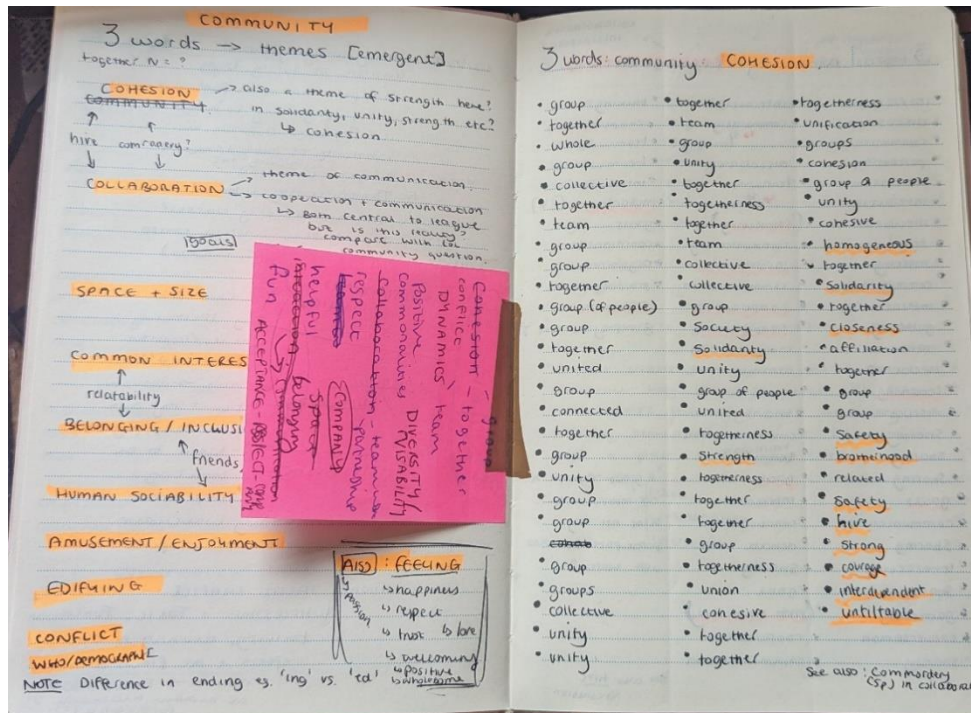 COMMUNITY
3 words → themes [emergent]
together N = ?
COHESION → also a theme of strength here?
COMMUNITY. in solidarity, unity, strength etc?
↳ cohesion
hive
COLLABORATION → theme of communication.
→ cooperation + communication
↳ Both central to league
but is this really?
compare with LoL
community question.
goals
SPACE + SIZE
COMMON INTERES
relatability
BELONGING / INCLUSI
friends
HUMAN SOCIABILITY
AMUSEMENT / ENJOYMENT
EDIFYING
CONFLICT
WHO/DEMOGRAPHIC
NOTE Difference in ending eg. 'ing' vs. 'ed'
Also : FEELING
passion
happiness
respect
trust love
welcoming
positive
wholesome
group
Cohesion - together
conflict
DYNAMICS team
Positive
commonalities DIVERSITY
collaboration - team
respect partnership
helpful COMPANY
Space
belonging
fun
ACCEPTANCE
3 words: community COHESION.
group
together
whole
group
collective
together
team
group
group
together
group (of people)
group
together
united
group
connected
together
group
unity
group
group
group
groups
collective
unity
unity
together
team
group
unity
together
togetherness
together
team
collective
collective
group
Society
Solidarity
unity
group of people
united
togetherness
Strength
togetherness
together
together
group
togetherness
union
cohesive
together
together
togetherness
unification
groups
cohesion
group a people
unity
cohesive
homogeneous
together
Solidarity
together
closeness
affiliation
together
group
group
Safety
brotherhood
related
Safety
hive
Strong
courage
interdependent
untiltable
See also : Commordery
(sp) in collabora